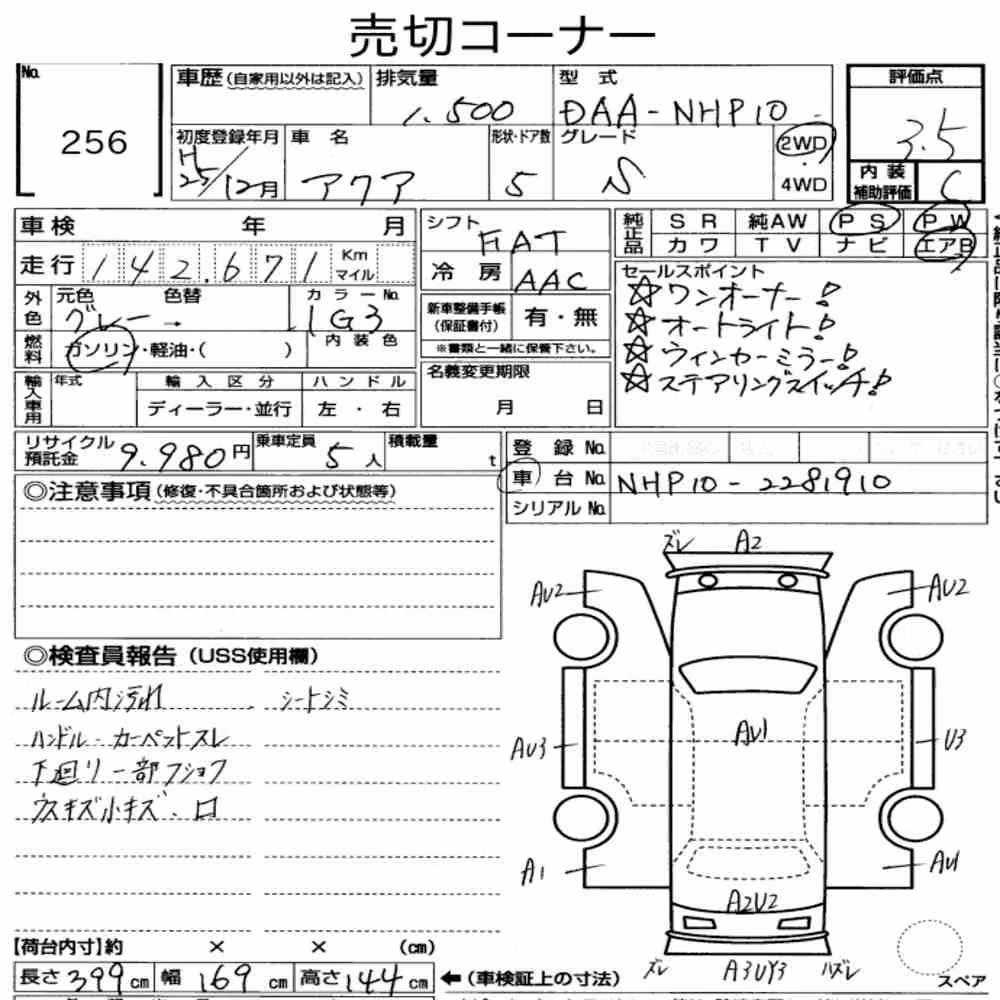 売切コーナー
No.
256
車歴(自家用以外は記入)
排気量
1.500
型 式
DAA-NHP10
評価点
3.5
内装補助評価
C
初度登録年月
H25/12月
車 名
アクア
形状・ドア数
5
グレード
S
2WD
4WD
車検 年 月
走行 142.671 Km マイル
シフト FAT
冷 房 AAC
純正品
SR 純AW PS PW
カワ TV ナビ エアB
外色
元色 グレー→
色替
カラーNo. 1G3
内装色
燃料
ガソリン・軽油・( )
新車整備手帳(保証書付) 有・無
※書類と一緒に保管下さい。
セールスポイント
☆ワンオーナー!
☆オートライト!
☆ウィンカーミラー!
☆ステアリングスイッチ!
輸入車用
年式
輸入区分
ディーラー・並行
ハンドル
左・右
名義変更期限
月 日
リサイクル預託金 9.980円
乗車定員 5人
積載量 t
登録No.
車台No. NHP10-2281910
シリアルNo.
◎注意事項(修復・不具合箇所および状態等)
◎検査員報告(USS使用欄)
ルーム内汚れ シートシミ
ハンドル・カーペントスレ
下廻り一部フショク
ウスキズ小キズ、ロ
ズレ A2
AU2 AU2
AU3 AU1 U3
A1 AU1
A2U2
ズレ A3UY3 ハズレ
スペア
【荷台内寸】約 × × (cm)
長さ399cm 幅169cm 高さ144cm
←(車検証上の寸法)